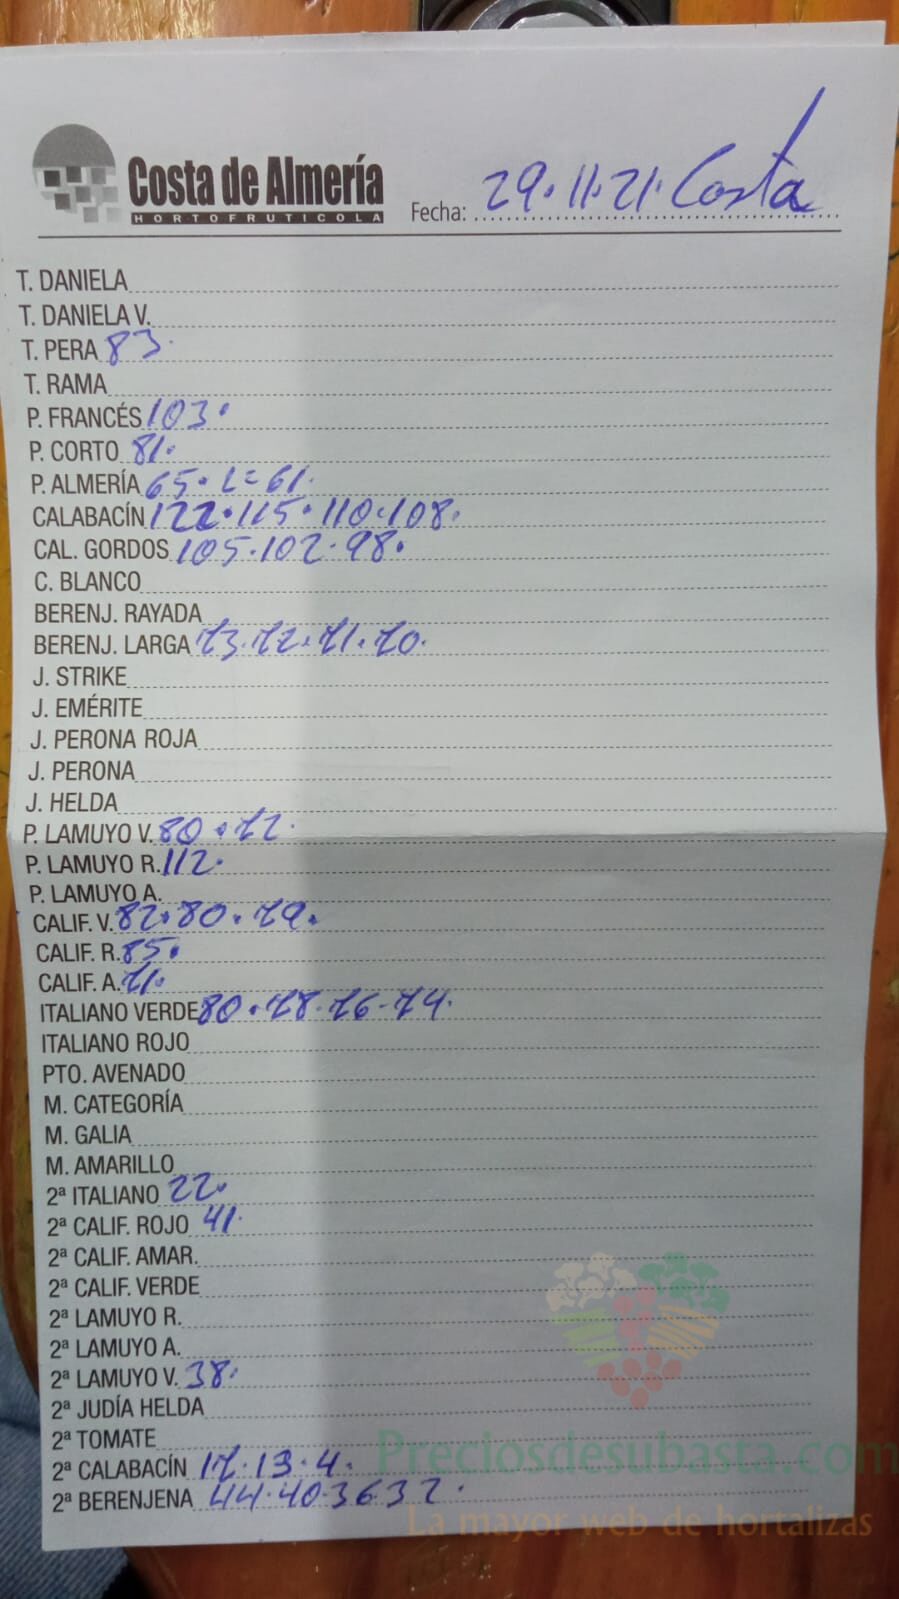 Costa de Almería
HORTOFRUTICOLA
Fecha: 29.11.21. Costa
T. DANIELA
T. DANIELA V.
T. PERA 83.
T. RAMA
P. FRANCÉS 103.
P. CORTO 81.
P. ALMERÍA 65. L=61.
CALABACÍN 122.115.110.108.
CAL. GORDOS 105.102.98.
C. BLANCO
BERENJ. RAYADA
BERENJ. LARGA 73.72.71.70.
J. STRIKE
J. EMÉRITE
J. PERONA ROJA
J. PERONA
J. HELDA
P. LAMUYO V. 80.72.
P. LAMUYO R. 112.
P. LAMUYO A.
CALIF. V. 82.80.79.
CALIF. R. 85.
CALIF. A. 71.
ITALIANO VERDE 80.78.76-74.
ITALIANO ROJO
PTO. AVENADO
M. CATEGORÍA
M. GALIA
M. AMARILLO
2ª ITALIANO 22.
2ª CALIF. ROJO 41.
2ª CALIF. AMAR.
2ª CALIF. VERDE
2ª LAMUYO R.
2ª LAMUYO A.
2ª LAMUYO V. 38.
2ª JUDÍA HELDA
2ª TOMATE
2ª CALABACÍN 17.13.4.
2ª BERENJENA 44.40.36.32.
Preciosdesubasta.com
La mayor web de hortalizas